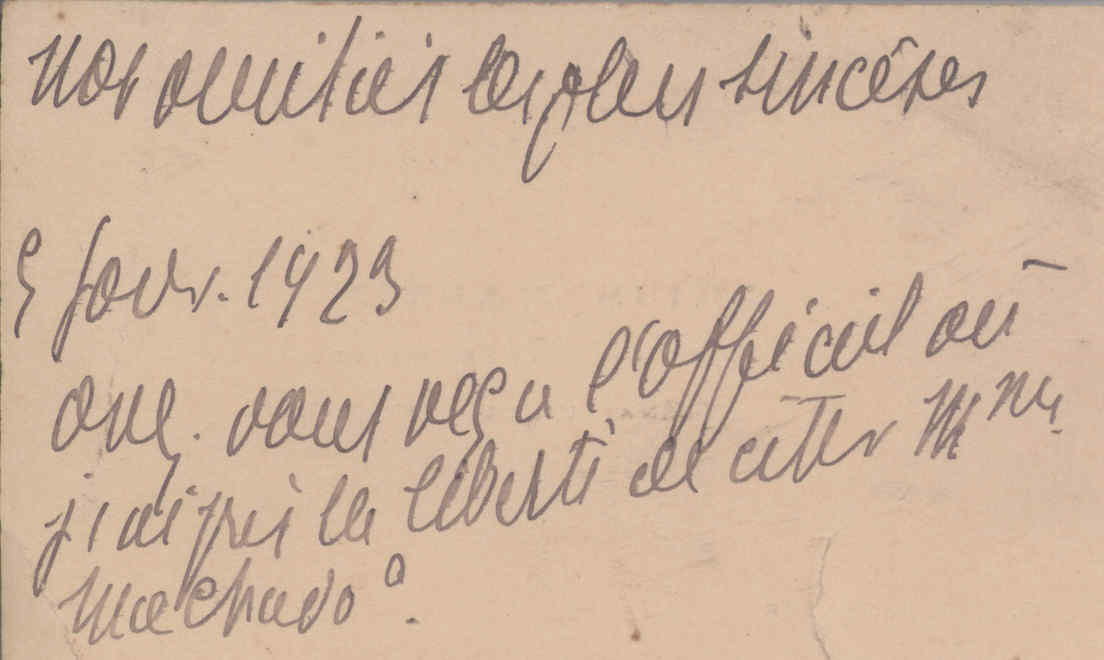 Nos amitiés les plus sincères
5 fevr. 1923
avez. vous reçu l'officiel où
j'ai pris la liberté de citer Mme
Machado?